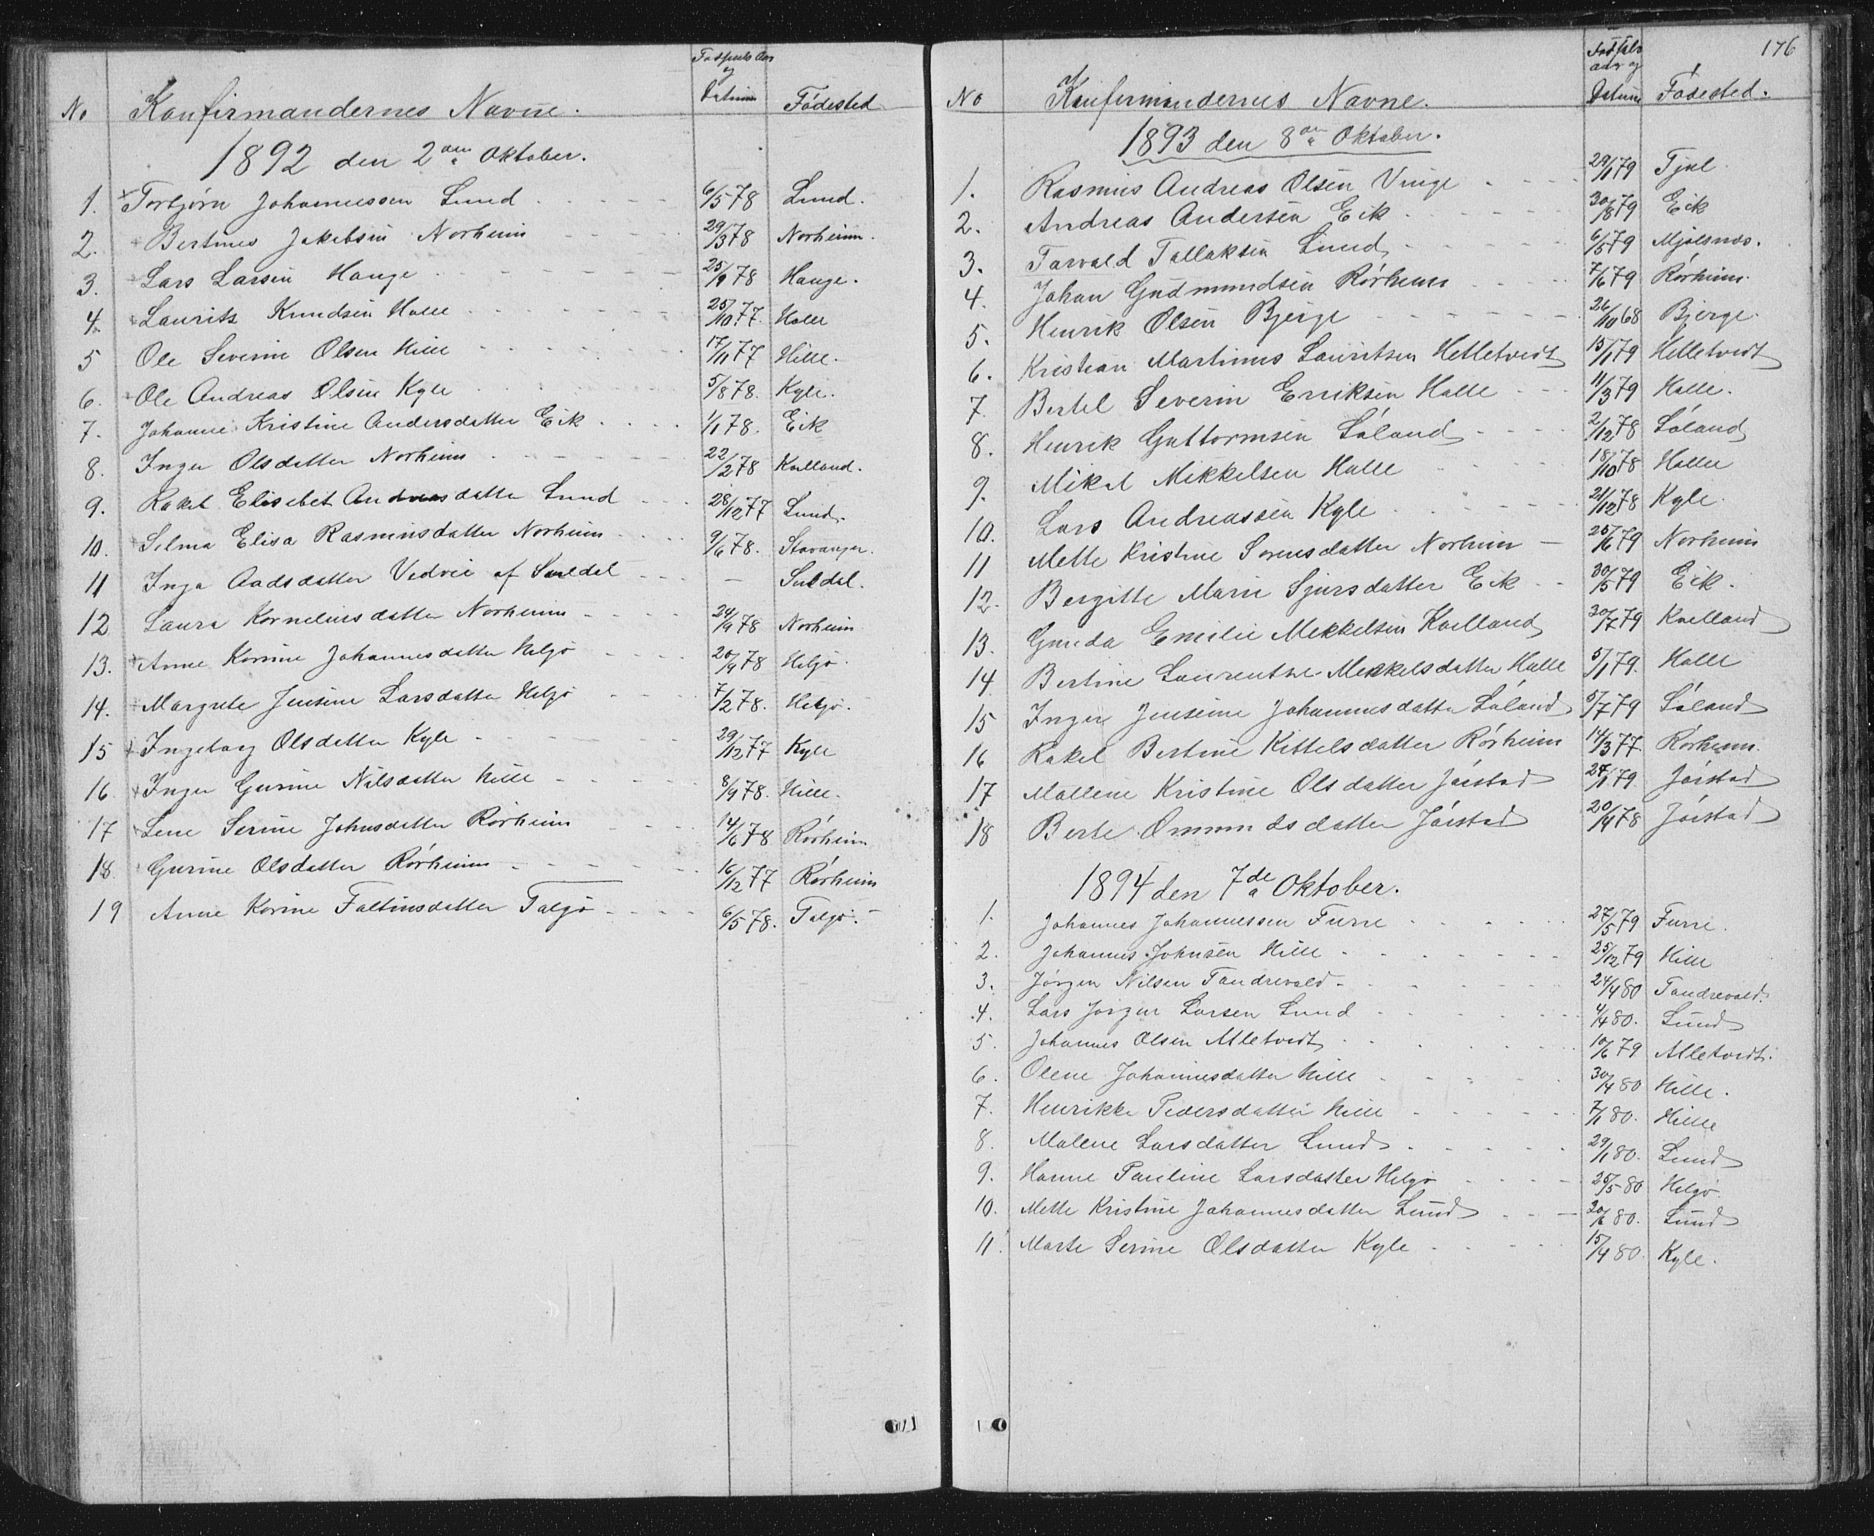 No Konfirmandernes Navne. Fødselsaar og Datum Fødested
1892 den 2den Oktober.
1. Torbjørn Johannessen Lund 6/5 78 Lund.
2. Bertines Jakobsen Norheim 29/3 78 Norheim.
3. Lars Larsen Hauge 25/9 78 Hauge.
4. Laurits Knudsen Halle 25/10 77. Halle
5 Ole Severin Olsen Hille 17/11 77 Hille.
6. Ole Andreas Olsen Kyle 5/8 78. Kyle.
7. Johanne Kristine Andersdatter Eik 1/1 78. Eik
8. Inger Olsdatter Norheim 22/2 78 Kvelland.
9. Rakel Elisebet Andreasdatter Lund 28/12 77 Lund.
10. Selma Elisa Rasmusdatter Norheim 9/6 78. Stavanger.
11 Inga Aadsdatter Vedvie af Suldal — Suldal.
12 Laura Korneliusdatter Norheim 24/9 78 Norheim
13. Anne Korine Johannesdatter Helgø 20/9 78 Helgø.
14. Margrete Jensine Larsdatter Helgø 7/2 78. Helgø.
15 Ingeborg Olsdatter Kyle 29/12 77 Kyle
16. Inger Gurine Nilsdatter Hille 8/9 78. Hille.
17 Lene Serine Johnsdatter Rørheim 14/6 78 Rørheim
18. Gurine Olsdatter Rørheim 16/12 77 Rørheim
19 Anne Korine Faltinsdatter Talgø 6/5 78. Talgø.
176
No Konfirmandernes Navne. Fødselsaar og Datum Fødested.
1893 den 8de Oktober.
1. Rasmus Andreas Olsen Vinge 29/1 79 Tjul
2. Andreas Andersen Eik 30/8 79 Eik
3. Torvald Tallaksen Lund 6/5 79 Mjølsnæs.
4. Johan Gudmundsen Rørheim 7/6 79 Rørheim.
5. Henrik Olsen Bjerge 26/10 68 Bjerge.
6. Kristian Martinus Lauritsen Helletvedt 15/1 79 Helletvedt
7. Bertel Severin Erriksen Halle 11/3 79 Halle.
8. Henrik Guttormsen Søland 2/12 78 Søland
9. Mikal Mikkelsen Halle 18/10 78 Halle
10. Lars Andreassen Kyle 21/12 78 Kyle.
11 Mette Kristine Sørensdatter Norheim 25/6 79 Norheim
12. Bergitte Marie Sjursdatter Eik 30/5 79 Eik.
13. Gunda Emilie Mikkelsen Kvelland 30/7 79 Kvelland
14 Bertine Laurentse Mikkelsdatter Halle 5/1 79. Halle
15 Inger Jensine Johannesdatter Søland 5/7 79 Søland
16 Rakel Bertine Kittelsdatter Rørheim 14/3 77. Rørheim.
17 Mallene Kristine Olsdatter Jøistad 24/1 79. Jøistad
18 Berte Ommundsdatter Jøistad 20/9 78 Jøistad
1894 den 7de Oktober.
1. Johannes Johannessen Furre 27/5 79 Furre.
2. Johannes Johnsen Hille 25/12 79 Hille
3. Jørgen Nilsen Tandrevold 24/4 80 Tandrevold.
4. Lars Jørgen Larsen Lund 4/4 80. Lund
5. Johannes Olsen Alletvedt 10/6 79 Alletvedt.
6. Olene Johannesdatter Hille 30/4 80 Hille.
7. Henrikke Pedersdatter Hille 7/1 80. Hille
8. Malene Larsdatter Lund 29/1 80. Lund
9. Hanne Pauline Larsdatter Helgø 25/5 80 Helgø.
10. Mette Kristine Johannesdatter Lund 20/6 80. Lund
11. Marte Serine Olsdatter Kyle 15/4 80. Kyle.